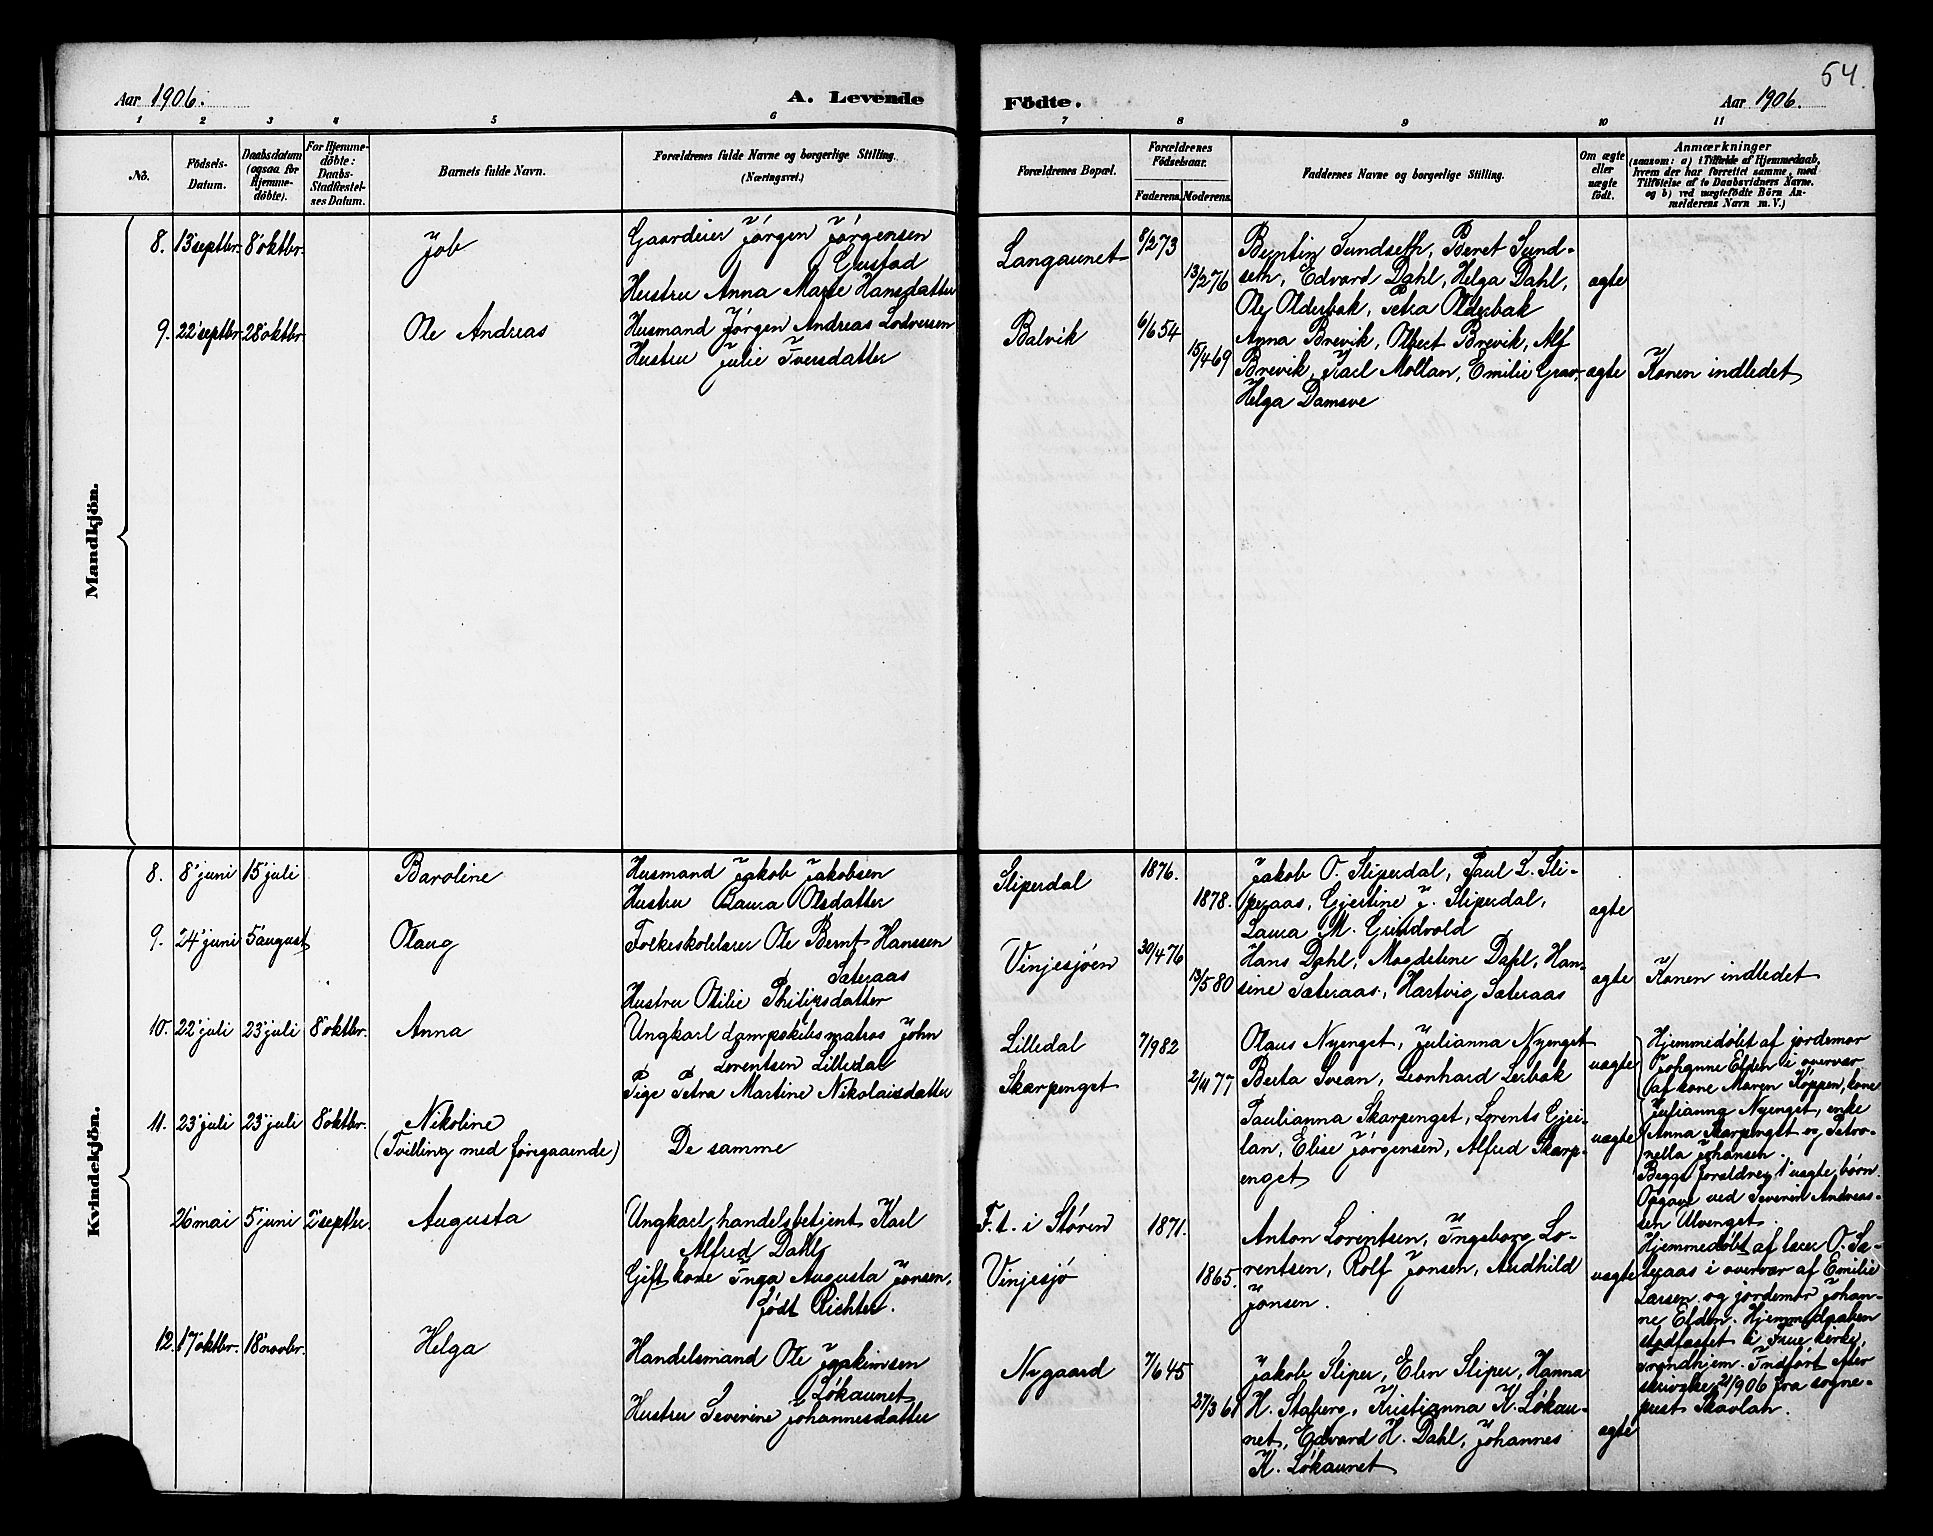 54.
Aar 1906.
A. Levende
Födte.
Aar 1906.
1 2 3 4 5 6 7 8 9 10 11
No.
Födsels-Datum.
Daabsdatum (ogsaa for Hjemmedöbte).
For Hjemmedöbte: Daabs-Stadfæstelses Datum.
Barnets fulde Navn.
Forældrenes fulde Navne og borgerlige Stilling. (Næringsvei.)
Forældrenes Bopæl.
Forældrenes Födselsaar.
Faderens. Moderens.
Faddernes Navne og borgerlige Stilling.
Om ægte eller uægte födt.
Anmærkninger
(saasom: a) i Tilfælde af Hjemmedaab,
hvem der har forrettet samme, med
Tilföielse af to Daabsvidners Navne.
og b) ved uægtefödte Börn An-
melderens Navn m. V.)
Mandkjön.
8. 13 septbr. 8 oktbr. Job
Gaardeier Jørgen Jørgensen
Gustad
Hustru Anna Marie Hansdatter
Langaunet 8/2 73
13/2 76
Berntin Sundseth, Beret Sund-
seth, Edvard Dahl, Helga Dahl,
Ole Olderbak, Petra Olderbak
ægte
9. 22 septbr. 28 oktbr. Ole Andreas
Husmand Jørgen Andreas Lodversen
Hustru Julie Iversdatter
Balvik 6/6 54
15/4 69
Anna Brevik, Olbert Brevik, Alf
Brevik, Karl Moltan, Emilie Grav,
Helga Damsve
ægte
Konen indledet
Kvindekjön.
8. 8 juni 15 juli Baroline
Husmand Jakob Jakobsen
Hustru Laura Olsdatter
Sliperdal 1876.
1878.
Jakob O. Sliperdal, Paul L. Sli-
peraas, Gjertine J. Sliperdal,
Laura M. Grindvold
ægte
9. 24 juni 5 august Olaug
Folkeskolelærer Ole Bernt Hanssen
Sæteraas
Hustru Otilie Philipsdatter
Vinjesjøen 30/4 76
13/5 80
Hans Dahl, Magdelene Dahl, Han-
sine Sæteraas, Hartvig Sæteraas
ægte
Konen indledet
10. 22 juli 23 juli 8 oktbr. Anna
Ungkarl dampskibsmatros John
Lorentsen Lilledal
Pige Petra Martine Nikolaisdatter
Lilledal 7/9 82
Skarpenget 2/11 77
Olaus Nyenget, Julianna Nyenget
Berta Svean, Leonhard Lerbak
uægte
Hjemmedøbt af jordemor
Johanne Elden i overvær
af kone Maren Koppen, kone
Julianna Nyenget, enke
Anna Skarpenget og Petro-
nella Johansen.
Begge forældres 1' uægte børn.
Opgave ved Severin Andreas-
sen Ulvenget.
11. 23 juli 23 juli 8 oktbr. Nikoline
(Tvilling med foregaaende)
De samme
Paulianna Skarpenget, Lorents Gjei-
lan, Elise Jørgensen, Alfred Skarp-
enget
uægte
26 mai 5 juni 2 septbr. Augusta
Ungkarl, handelsbetjent Karl
Alfred Dahl
Gift kone Inga Augusta Jonsen,
født Richter.
F. t. i Støren 1871.
Vinjesjø 1865.
Anton Lorentsen, Ingeborg Lo-
rentsen, Rolf Jonsen, Audhild
Jonsen.
uægte
Hjemmedøbt af lærer O. Sæ-
teraas i overvær af Emilie
Larsen og jordemor Johan-
ne Elden. Hjemmedaaben
stadfæstet i Frue kirke,
Trondhjem. Indført efter
skrivelse 21/9 06 fra sogne-
prest Skavlan.
12. 17 oktbr. 18 novbr. Helga
Handelsmand Ole Joakimsen
Løkaunet
Hustru Severine Johannesdatter
Nygaard 7/6 45
27/3 61
Jakob Sliper, Elen Sliper, Hanna
H. Staberg, Kristianna K. Løkau-
net, Edvard H. Dahl, Johannes
K. Løkaunet
ægte